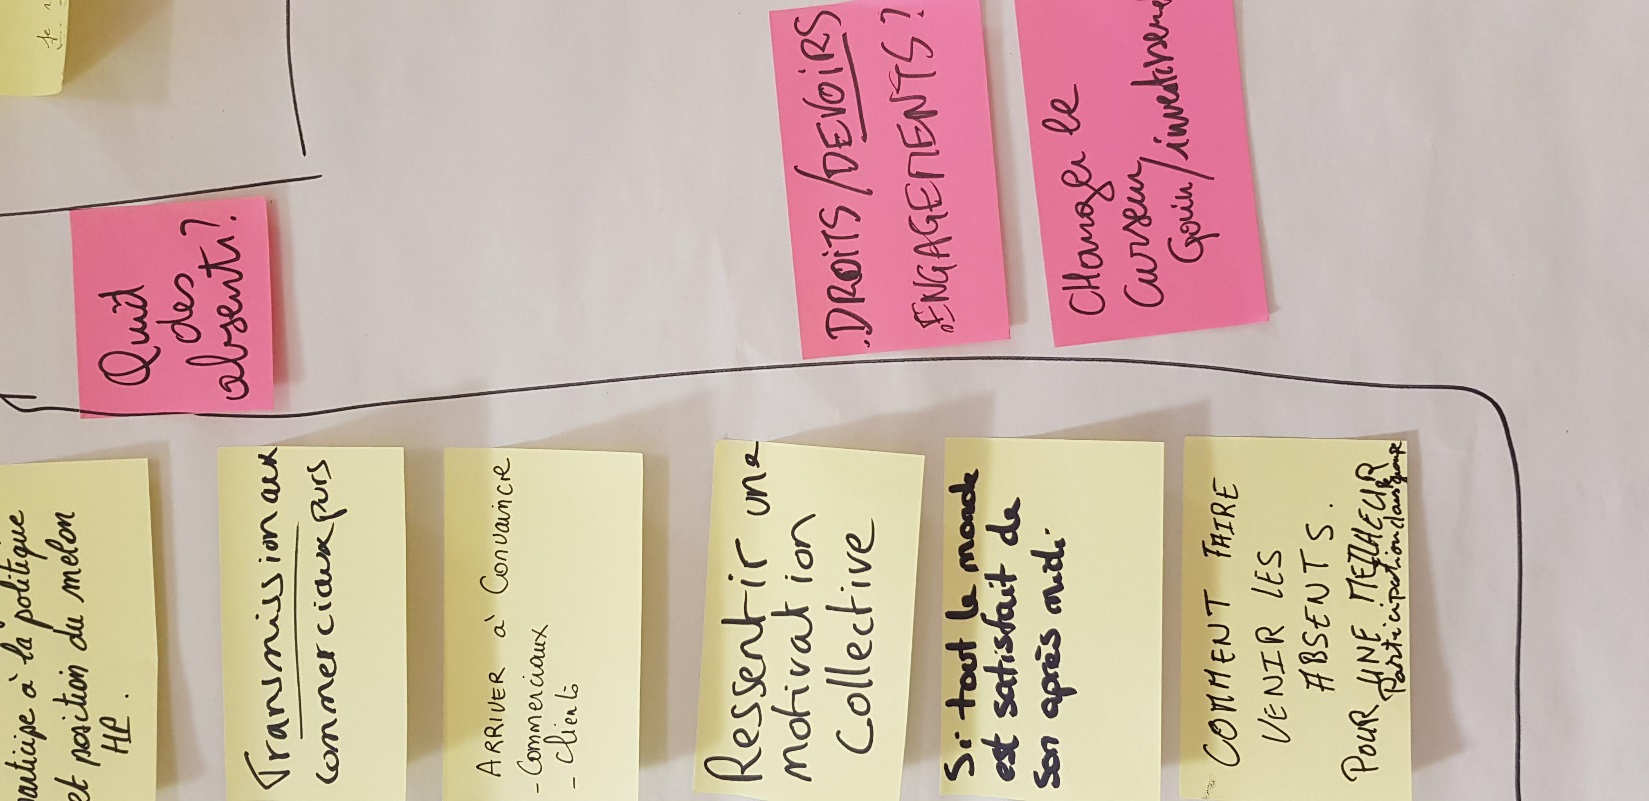 Quid
des
absents?
.DROITS/DEVOIRS
.ENGAGEMENTS?
CHanger le
Curseur
Gain/investissem
participe à la politique
et position du melon
HP.
Transmission aux
commerciaux purs
ARRIVER à CONVAINCRE
- Commerciaux
- Clients
Ressentir une
motivation
Collective
Si tout le monde
est satisfait de
son après midi.
COMMENT FAIRE
VENIR LES
ABSENTS.
POUR UNE MEILLEUR
Participation dans groupe